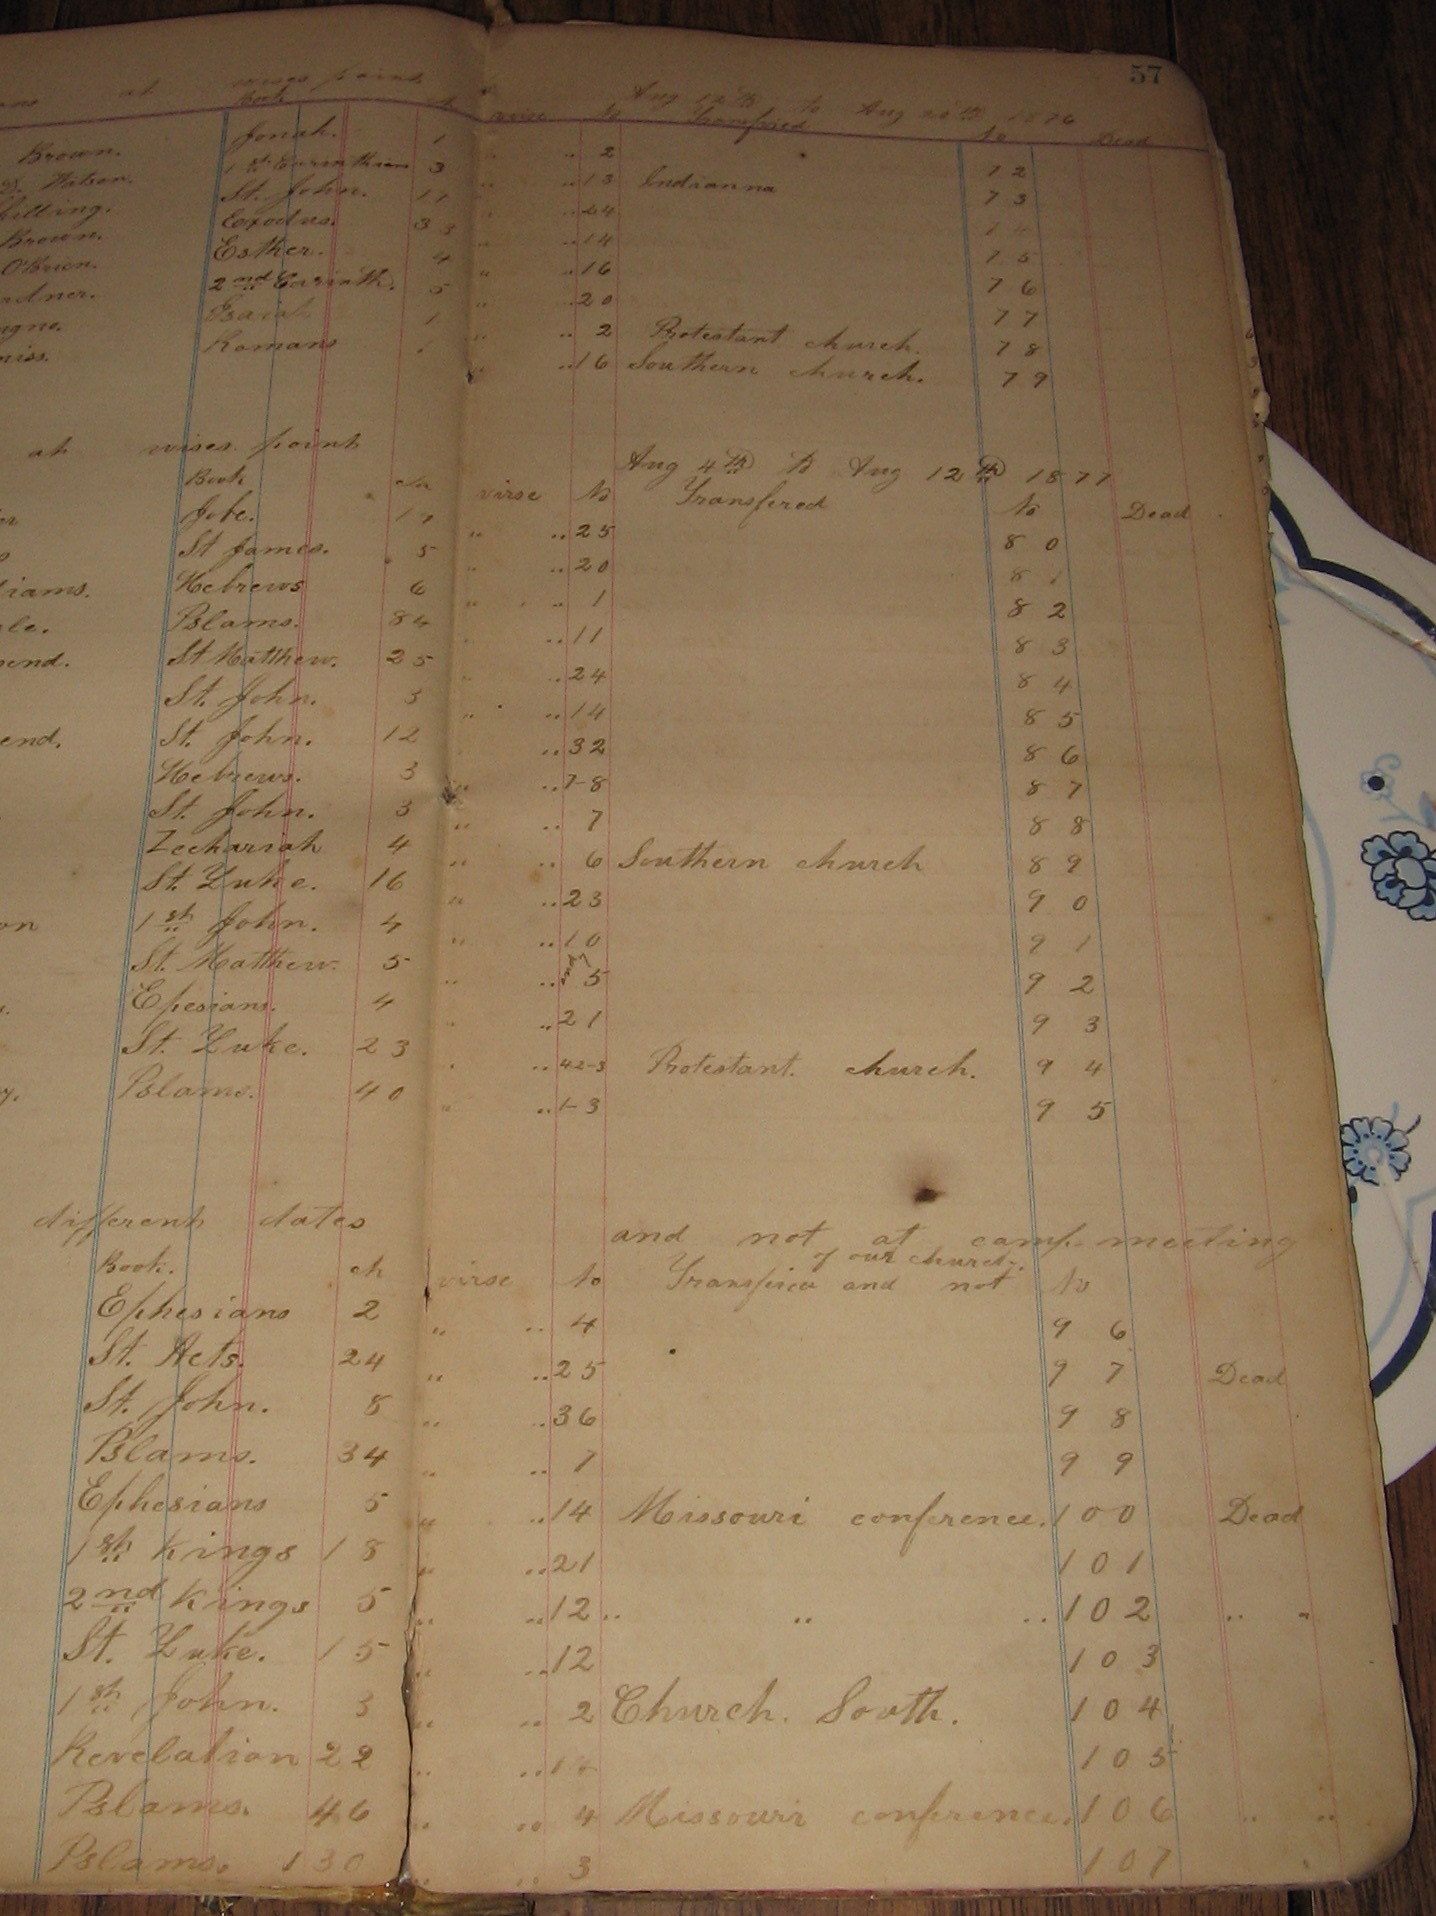 57
at wises point Aug 12th to Aug 20th 1876
Book ch virse No Transfired No Dead
Brown. Jonah. 1 " .. 2 72
D. Watson. 1st Corinthians 3 " .. 13 Indianna 73
St. John. 11 " .. 24 74
Brown. Exodus. 33 " .. 14 75
O'Brien. Esther. 4 " .. 16 76
rdner. 2nd Corinth. 5 " .. 20 77
Isaiah 1 " .. 2 Protestant church. 78
Romans 1 " .. 16 Southern church. 79
at wises point Aug 4th to Aug 12th 1877
Book ch virse No Transfered No Dead
Jobe. 19 " .. 25 80
St James. 5 " .. 20 81
liams. Hebrews 6 " .. 1 82
le. Pslams. 84 " .. 11 83
end. St Matthew. 25 " .. 24 84
St. John. 3 " .. 14 85
end. St. John. 12 .. 32 86
Hebrews. 3 " .. 7-8 87
St. John. 3 " .. 7 88
Zechariah 4 " .. 6 Southern church 89
St. Luke. 16 " .. 23 90
on 1st John. 4 " .. 10 91
St. Matthew. 5 " .. 5 92
Epesians. 4 " .. 21 93
St. Luke. 23 " .. 42-3 Protestant. church. 94
y. Pslams. 40 " .. 1-3 95
different dates and not at camp meeting
of our church.
Book. ch virse No Transfired and not No
Ephesians 2 " .. 4 96
St. Acts. 24 " .. 25 97 Dead
St. John. 8 " .. 36 98
Pslams. 34 " .. 7 99
Ephesians 5 " .. 14 Missouri conference. 100 Dead
1st Kings 18 " .. 21 101
2nd Kings 5 " .. 12 .. " .. 102 .. "
St. Luke. 15 " .. 12 103
1st John. 3 " .. 2 Church. South. 104
Revelation 22 " .. 105
Pslams. 46 " .. 4 Missouri conference. 106 " "
Pslams. 130 " .. 3 107